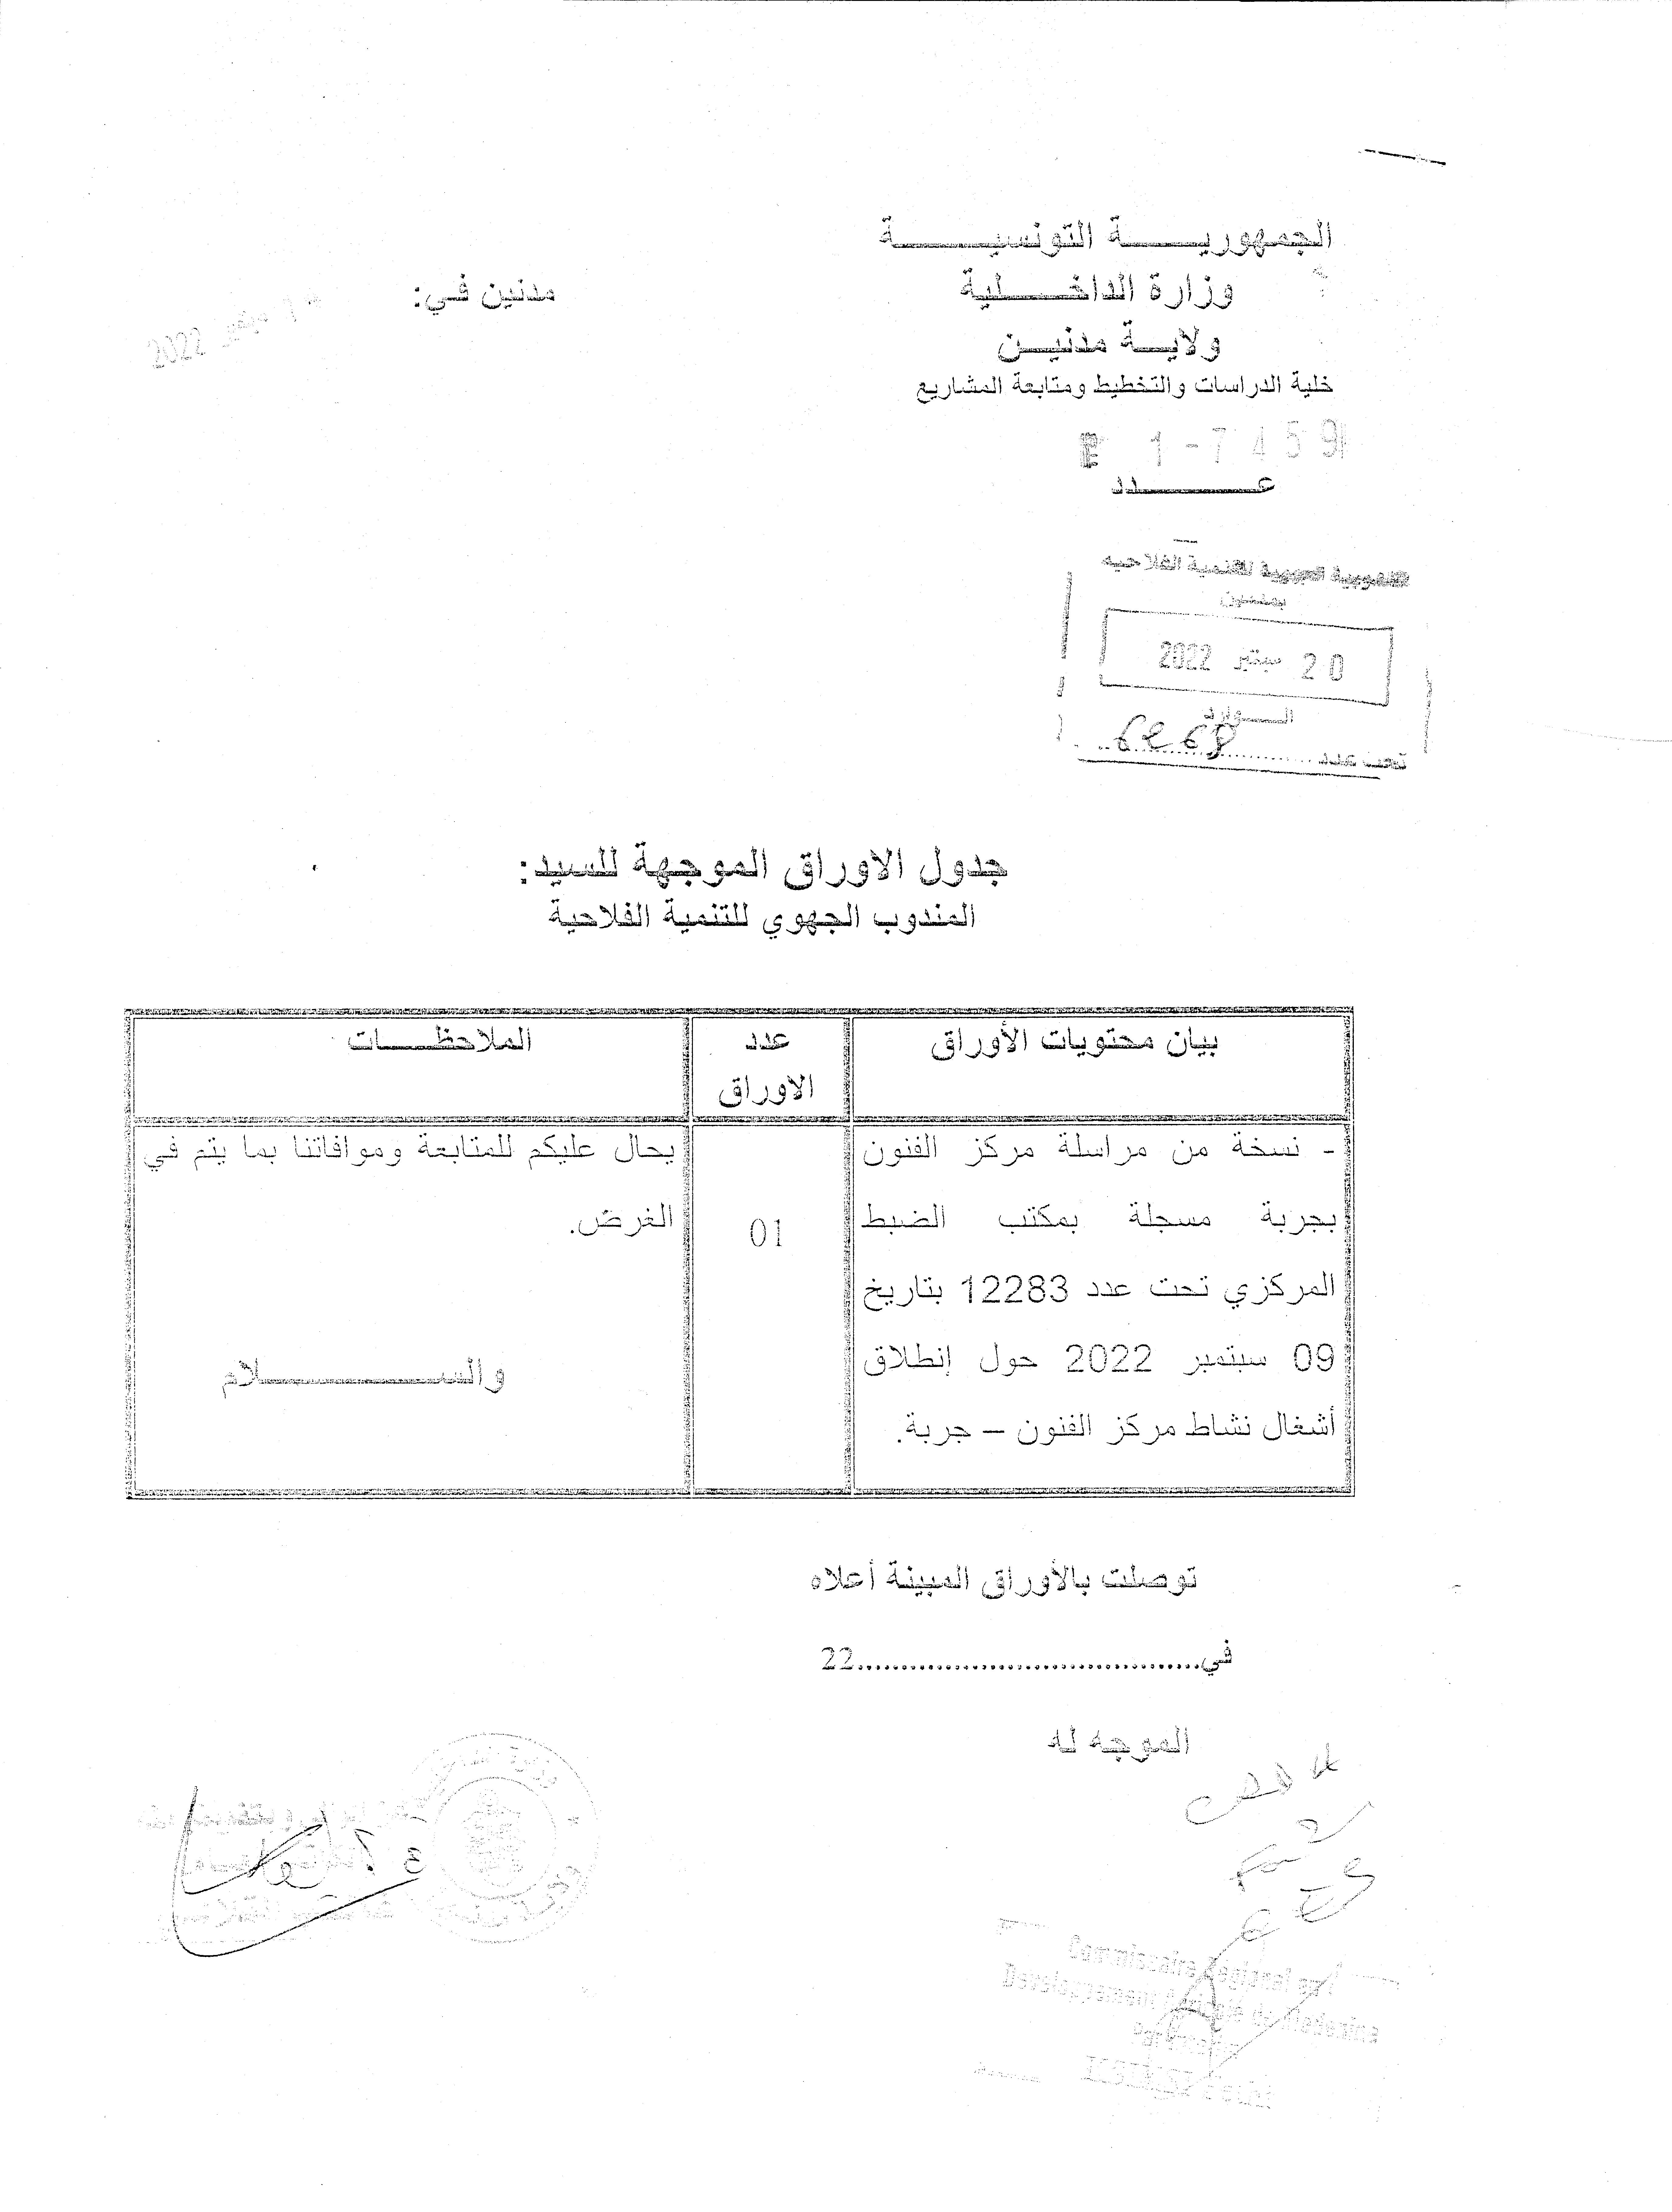 الجمهورية التونسية
وزارة الداخلية
ولاية مدنين
خلية الدراسات والتخطيط ومتابعة المشاريع
مدنين في:
2022
1-7459
عدد
المندوبية الجهوية للتنمية الفلاحية
بمدنين
20 سبتمبر 2022
الوارد
تحت عدد
جدول الاوراق الموجهة للسيد:
المندوب الجهوي للتنمية الفلاحية
بيان محتويات الأوراق
عدد
الاوراق
الملاحظات
- نسخة من مراسلة مركز الفنون
بجربة مسجلة بمكتب الضبط
المركزي تحت عدد 12283 بتاريخ
09 سبتمبر 2022 حول إنطلاق
أشغال نشاط مركز الفنون – جربة.
01
يحال عليكم للمتابعة وموافاتنا بما يتم في
الغرض.
والسلام
توصلت بالأوراق المبينة أعلاه
في........................................22
الموجه له